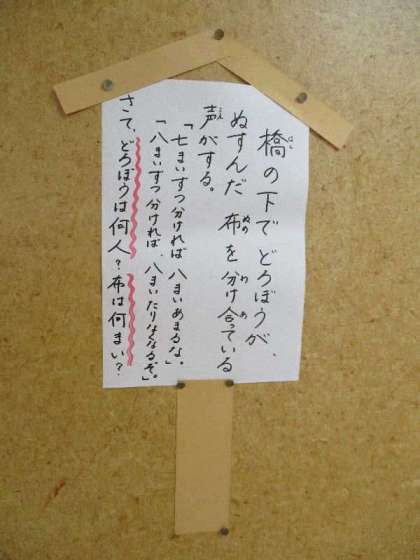 橋の下でどろぼうが、
ぬすんだ布を分け合っている
声がする。
「七まいずつ分ければ八まいあまるな。」
「八まいずつ分ければ、八まいたりなくなるぞ。」
さて、どろぼうは何人？布は何まい？